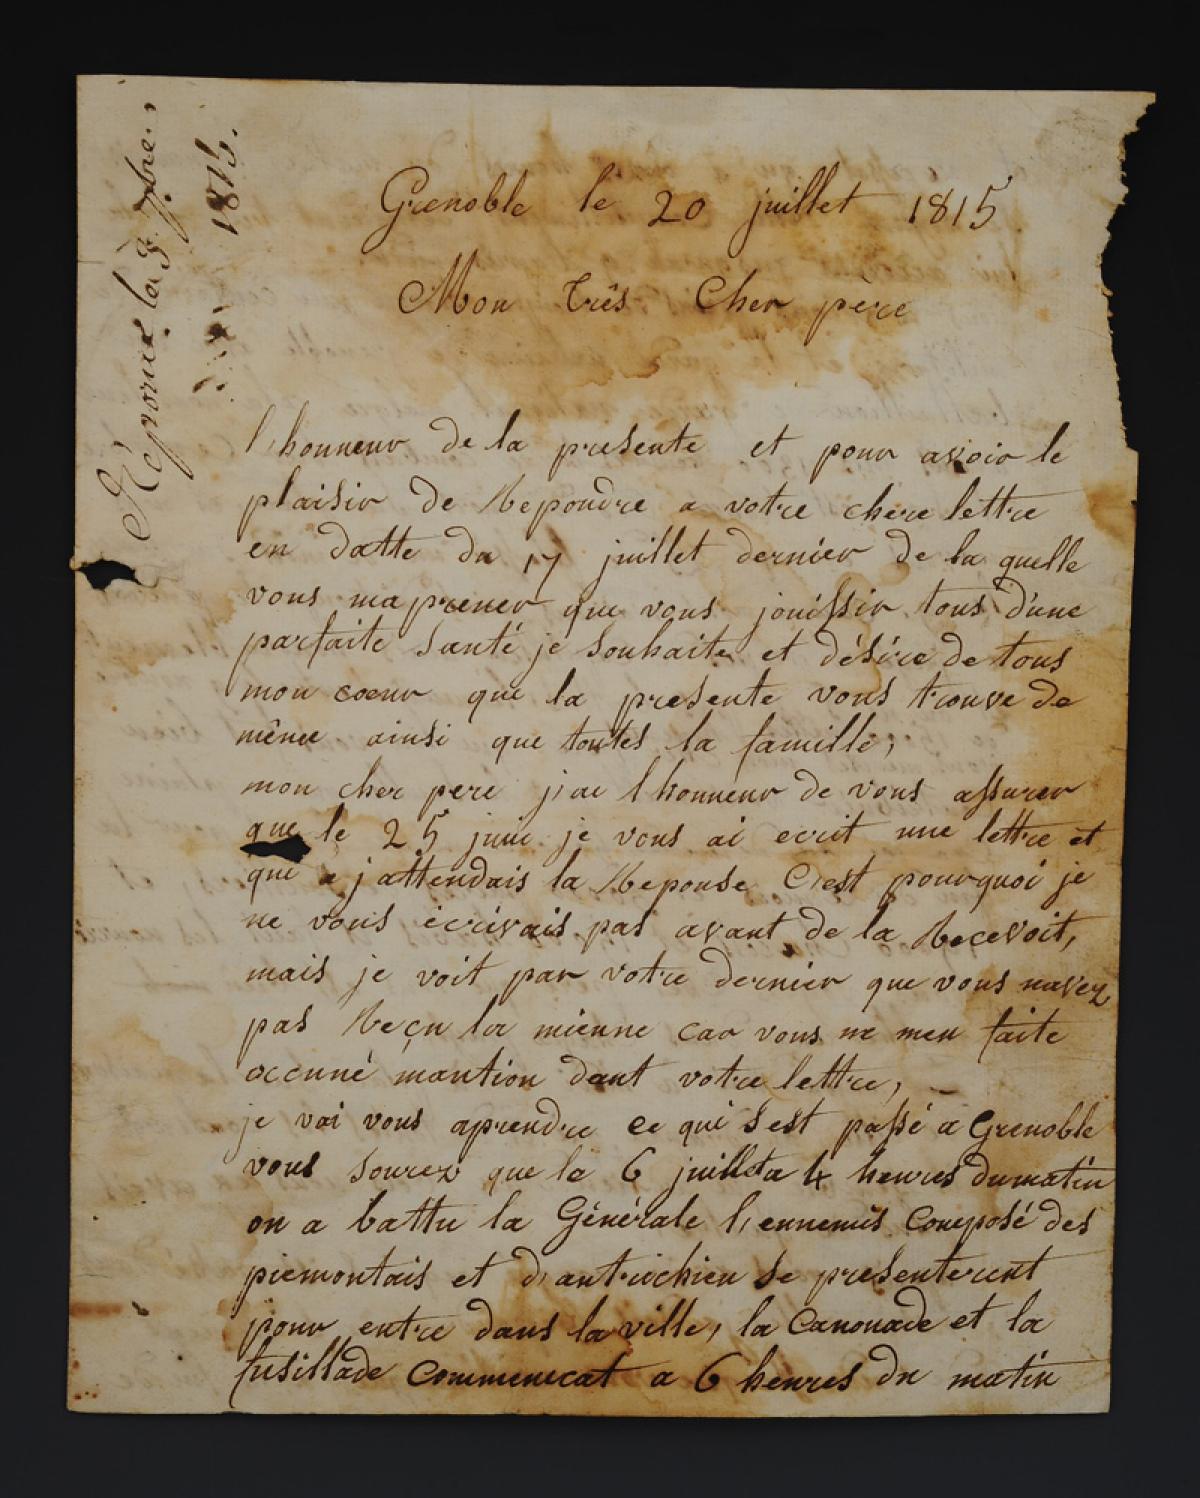 Réponıe la 9 7bre
1815.
Grenoble le 20 juillet 1815
Mon très Cher père
l'honneur de la presente et pour avoir le
plaisir de Repondre a votre chere lettre
en datte du 17 juillet dernier de la quelle
vous maprener que vous jouissir tous d'une
parfaite Santé je Souhaite et désire de tous
mon coeur que la presente vous trouve de
même ainsi que toutes la famille,
mon cher pere j'ai l honneur de vous assurer
que le 25 juin je vous ai ecrit une lettre et
que j attendais la Reponse C'est pourquoi je
ne vous écrivais pas avant de la Recevoit,
mais je voit par votre dernier que vous navez
pas Reçu la mienne car vous ne men faite
occuné mantion dant votre lettre,
je vai vous aprendre ce qui S est passé a Grenoble
vous Sourez que le 6 juillet a 4 heures du matin
on a battu la Générale l'ennemis Composé des
piemontais et d'autrichien Se presenterent
pour entre dans la ville, la Canonade et la
fusillade Commencat a 6 heures du matin